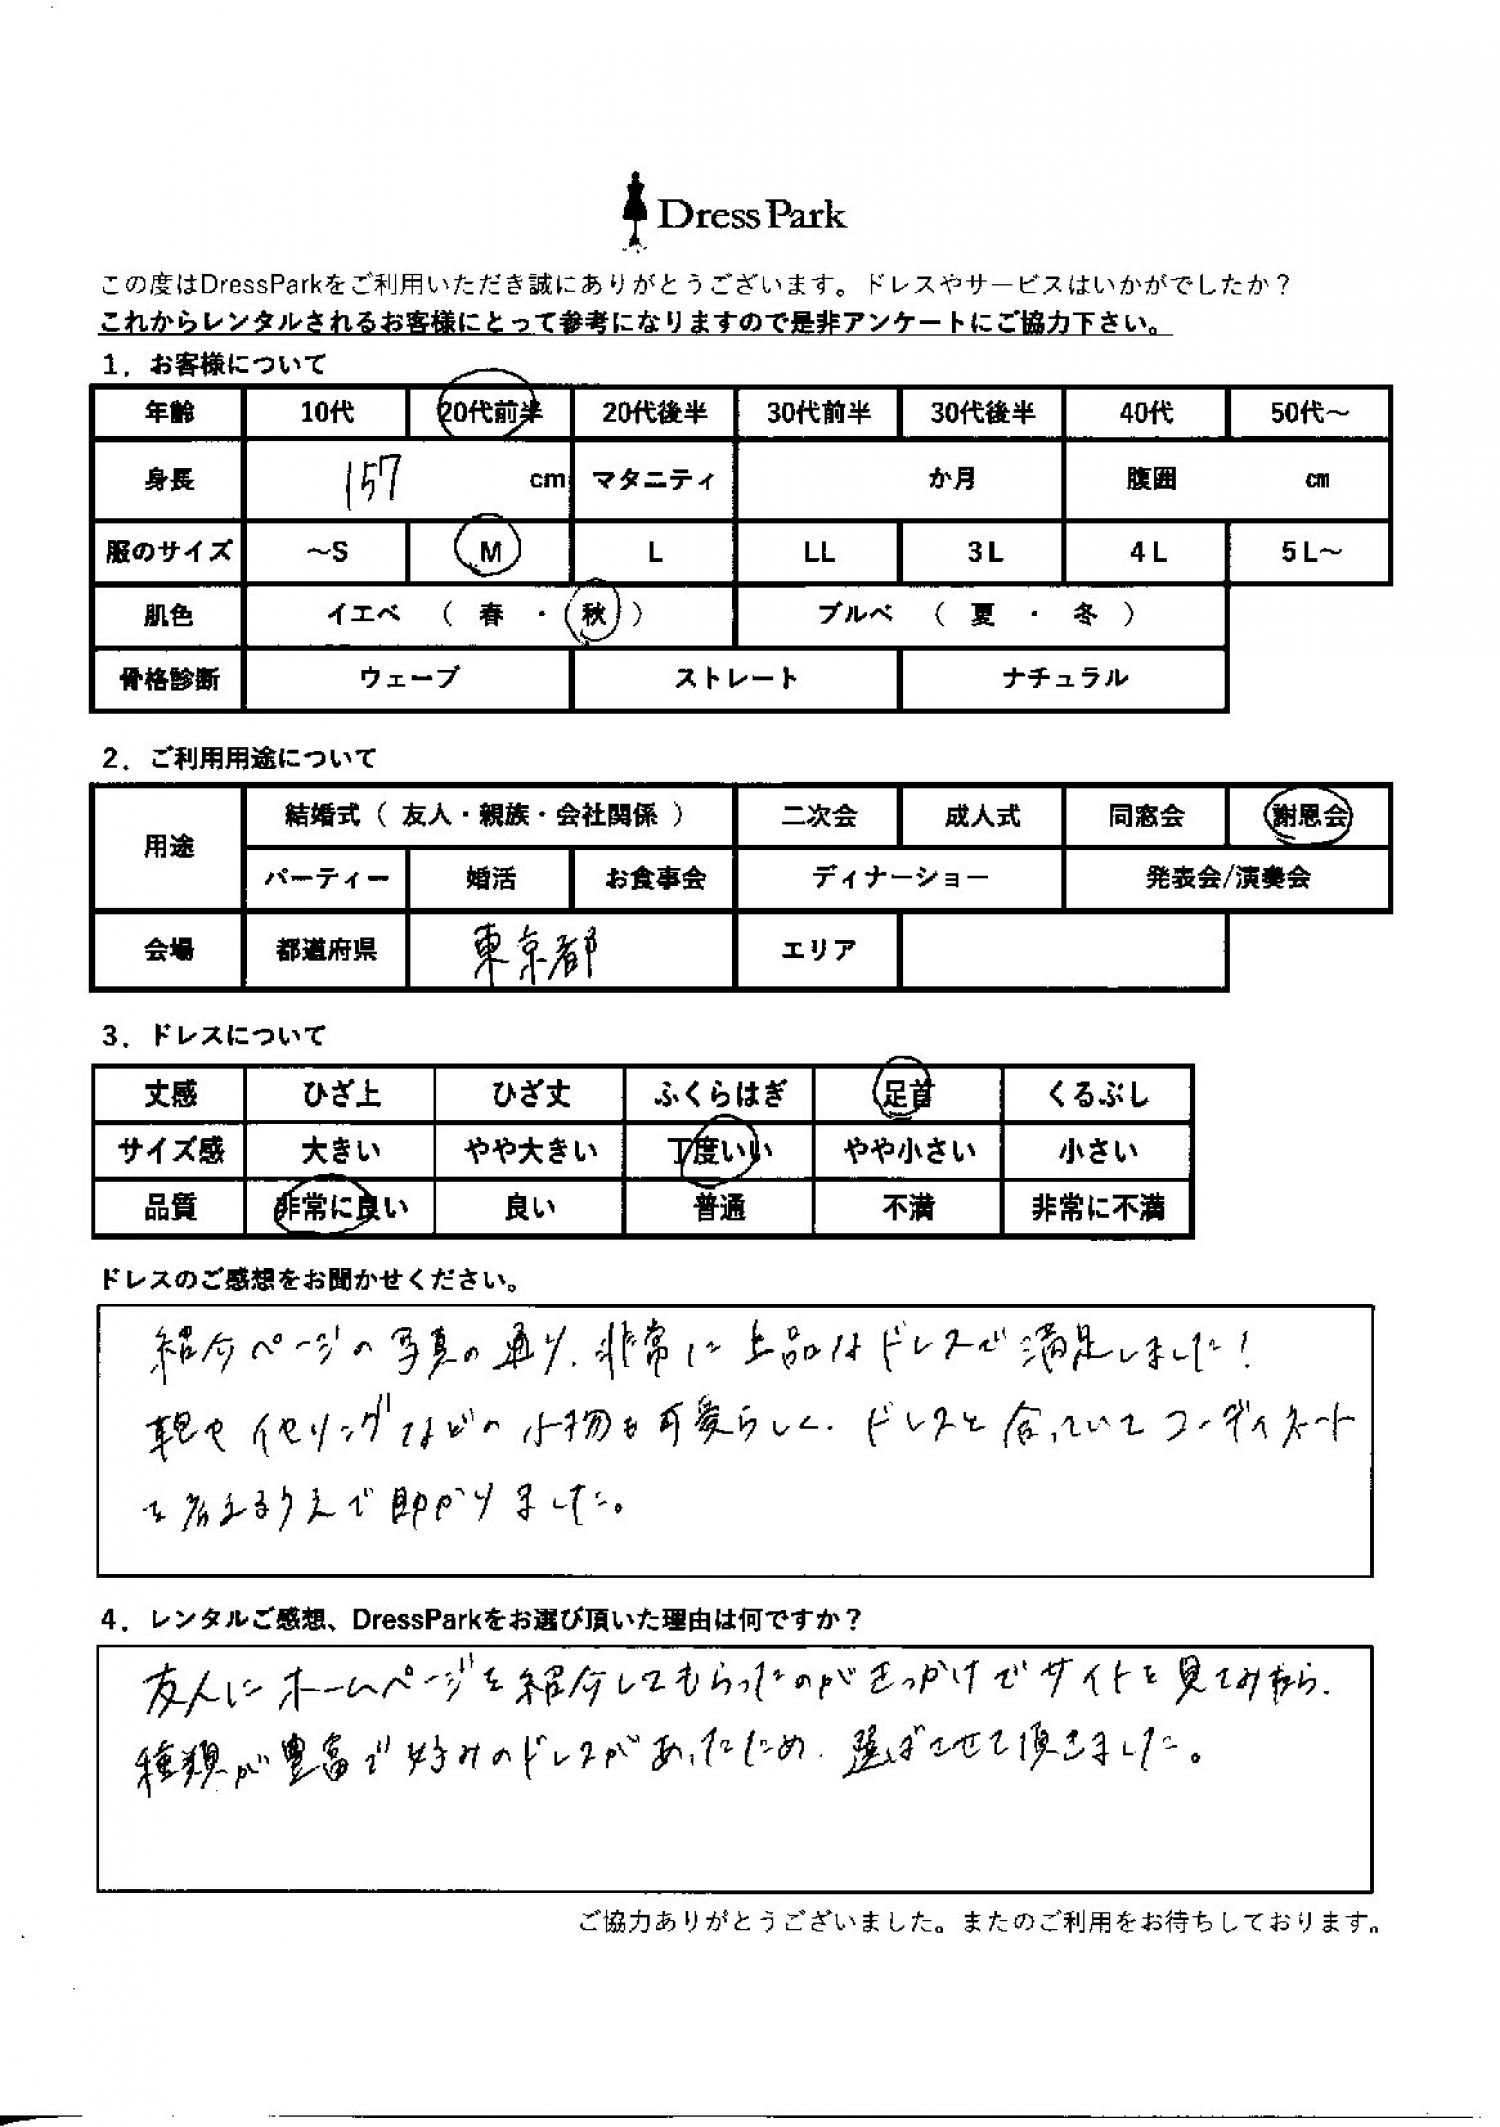 Dress Park
この度はDressParkをご利用いただき誠にありがとうございます。ドレスやサービスはいかがでしたか？
これからレンタルされるお客様にとって参考になりますので是非アンケートにご協力下さい。
1．お客様について
年齢 10代 20代前半 20代後半 30代前半 30代後半 40代 50代～
身長 157 cm マタニティ か月 腹囲 cm
服のサイズ ～S M L LL 3L 4L 5L～
肌色 イエベ （ 春 ・ 秋 ） ブルベ （ 夏 ・ 冬 ）
骨格診断 ウェーブ ストレート ナチュラル
2．ご利用用途について
用途 結婚式（ 友人・親族・会社関係 ） 二次会 成人式 同窓会 謝恩会
パーティー 婚活 お食事会 ディナーショー 発表会/演奏会
会場 都道府県 東京都 エリア
3．ドレスについて
丈感 ひざ上 ひざ丈 ふくらはぎ 足首 くるぶし
サイズ感 大きい やや大きい 丁度いい やや小さい 小さい
品質 非常に良い 良い 普通 不満 非常に不満
ドレスのご感想をお聞かせください。
紹介ページの写真の通り、非常に上品なドレスで満足しました！
靴やイヤリングなどの小物も可愛らしく、ドレスと合っていてコーディネート
を考えるうえで助かりました。
4．レンタルご感想、DressParkをお選び頂いた理由は何ですか？
友人にホームページを紹介してもらったのがきっかけでサイトを見てみたら、
種類が豊富で好みのドレスがあったため、選ばさせて頂きました。
ご協力ありがとうございました。またのご利用をお待ちしております。